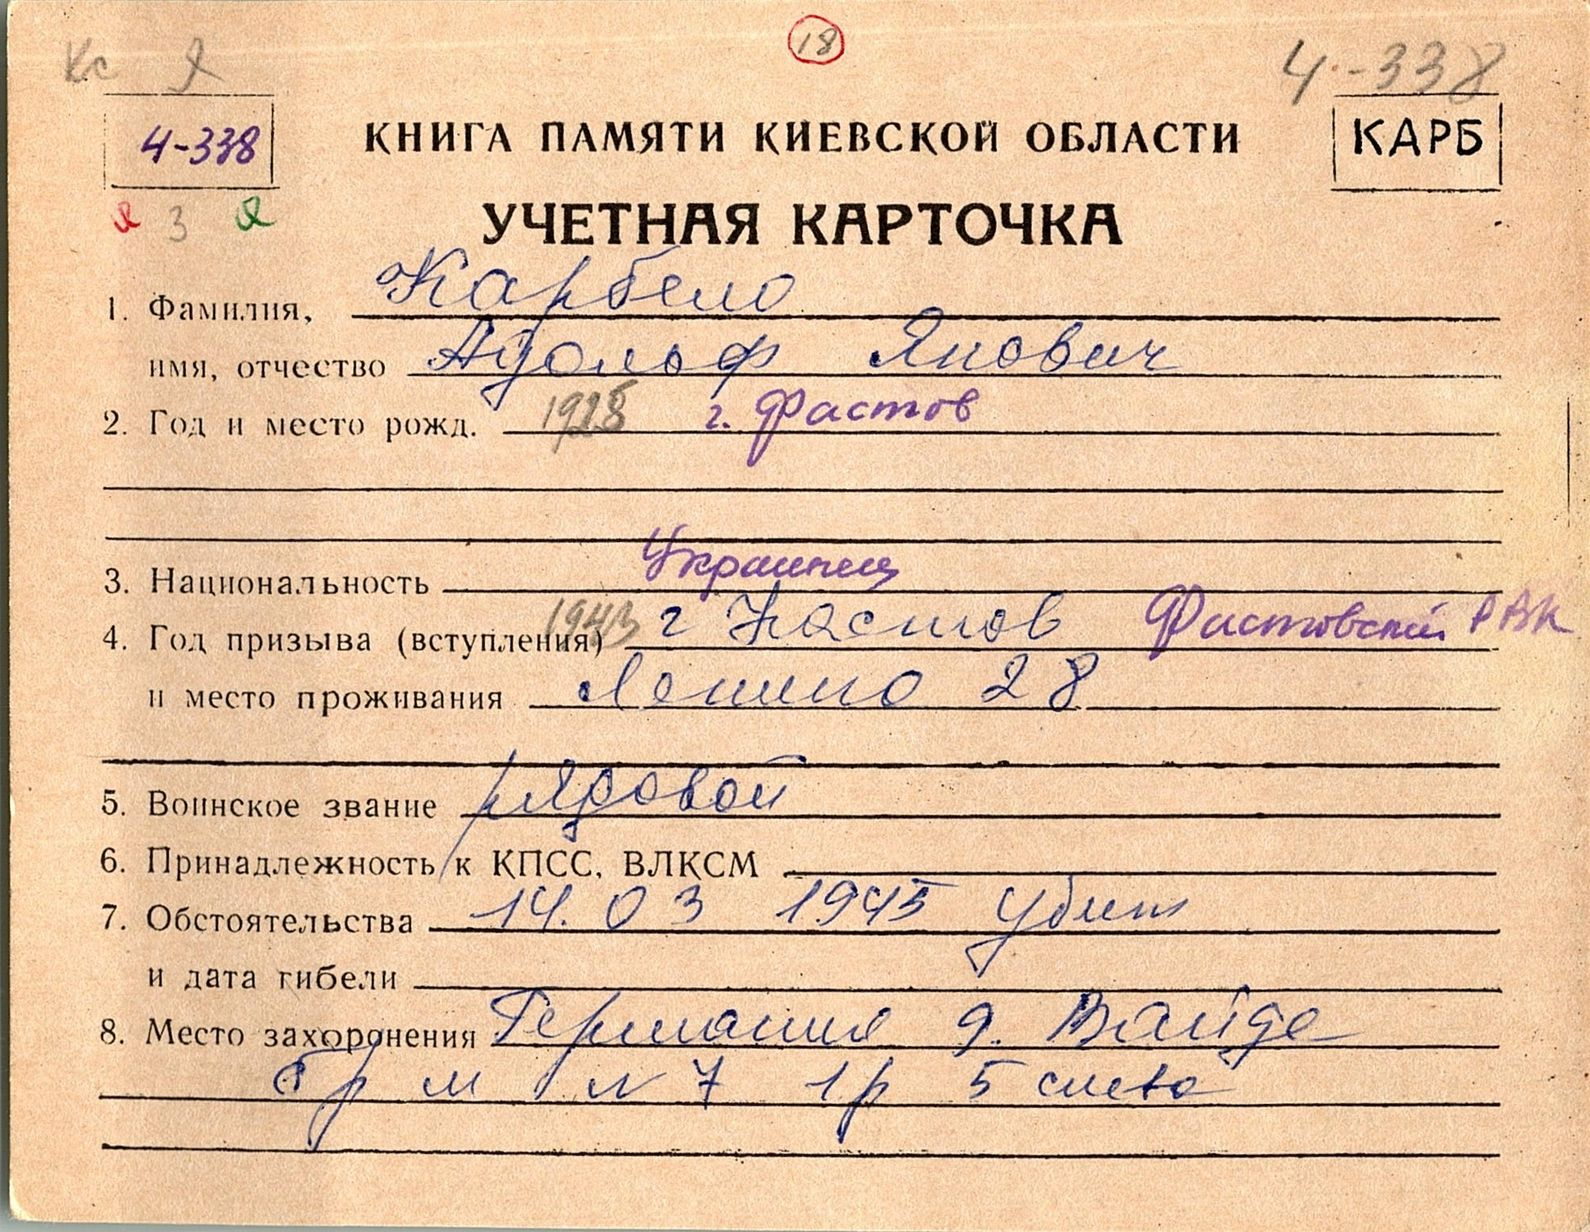 18
Кс Я
4-338
4-338
КНИГА ПАМЯТИ КИЕВСКОЙ ОБЛАСТИ
КАРБ
Я 3 Я
УЧЕТНАЯ КАРТОЧКА
1. Фамилия, Карбело
имя, отчество Адольф Янович
2. Год и место рожд. 1928 г. Фастов
3. Национальность Украинец
4. Год призыва (вступления) 1943 г Фастов Фастовский РВК
и место проживания Ленино 28
5. Воинское звание рядовой
6. Принадлежность к КПСС, ВЛКСМ
7. Обстоятельства 14. 03 1945 убит
и дата гибели
8. Место захоронения Германия д. Вайде
бр м N 7 1р 5 слева